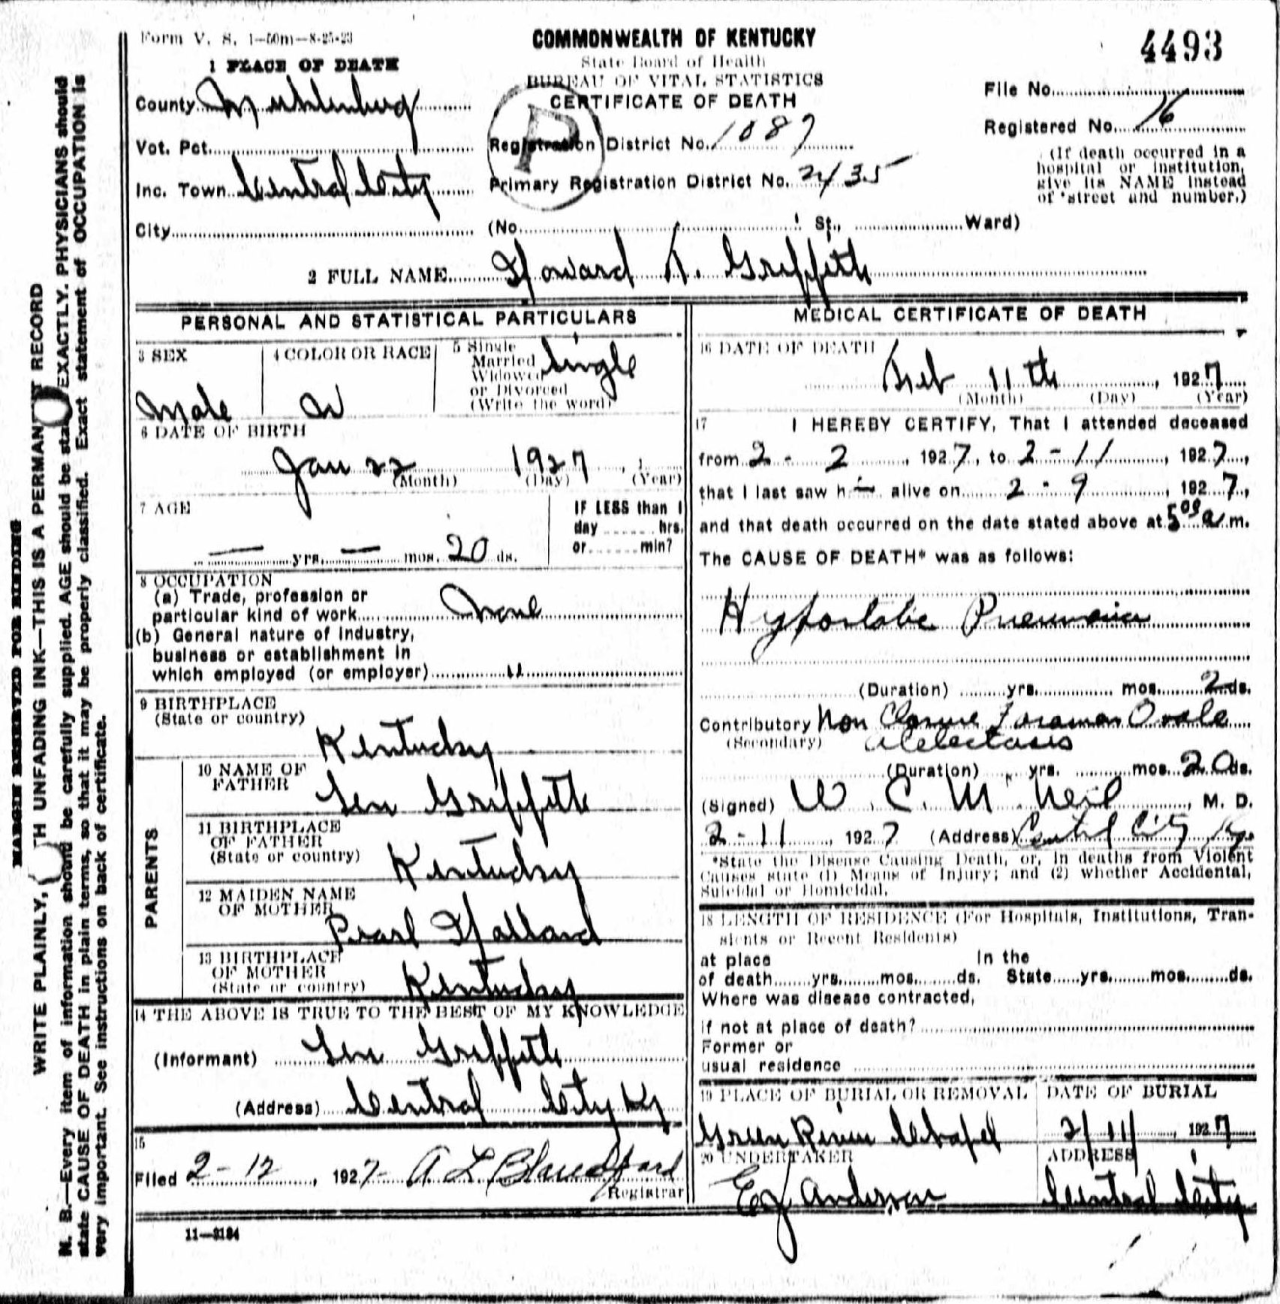 Form V. S. 1—50m—8-25-23
COMMONWEALTH OF KENTUCKY
State Board of Health
BUREAU OF VITAL STATISTICS
CERTIFICATE OF DEATH
4493
1 PLACE OF DEATH
County Muhlenburg
Vot. Pct.
Inc. Town Central City
City
P
Registration District No. 1087
Primary Registration District No. 2435
(No. St., Ward)
File No.
Registered No. 16
(If death occurred in a
hospital or institution,
give its NAME instead
of street and number.)
2 FULL NAME Howard K. Griffith
PERSONAL AND STATISTICAL PARTICULARS
3 SEX
Male
4 COLOR OR RACE
W
5 Single
Married
Widowed
or Divorced
(Write the word)
Single
6 DATE OF BIRTH
Jan 22 1927
(Month) (Day) (Year)
7 AGE
— yrs. — mos. 20 ds.
IF LESS than 1
day hrs.
or min?
8 OCCUPATION
(a) Trade, profession or
particular kind of work None
(b) General nature of industry,
business or establishment in
which employed (or employer) "
9 BIRTHPLACE
(State or country)
Kentucky
PARENTS
10 NAME OF
FATHER
Len Griffith
11 BIRTHPLACE
OF FATHER
(State or country)
Kentucky
12 MAIDEN NAME
OF MOTHER
Pearl Halland
13 BIRTHPLACE
OF MOTHER
(State or country)
Kentucky
14 THE ABOVE IS TRUE TO THE BEST OF MY KNOWLEDGE
(Informant) Len Griffith
(Address) Central City Ky
15
Filed 2-12, 1927 A L Blandford
Registrar
11—3184
MEDICAL CERTIFICATE OF DEATH
16 DATE OF DEATH
Feb 11th, 1927
(Month) (Day) (Year)
17 I HEREBY CERTIFY, That I attended deceased
from 2-2, 1927, to 2-11, 1927,
that I last saw h— alive on 2-9, 1927,
and that death occurred on the date stated above at 5 00 a.m.
The CAUSE OF DEATH* was as follows:
Hypostatic Pneumonia
(Duration) yrs. mos. 2 ds.
Contributory Non Closure Foraman Ovale
(Secondary) Atelectasis
(Duration) yrs. mos. 20 ds.
(Signed) W. C. McNeil, M. D.
2-11 1927 (Address) Central City Ky.
*State the Disease Causing Death, or, in deaths from Violent
Causes state (1) Means of Injury; and (2) whether Accidental,
Suicidal or Homicidal.
18 LENGTH OF RESIDENCE (For Hospitals, Institutions, Tran-
sients or Recent Residents)
at place In the
of death yrs. mos. ds. State yrs. mos. ds.
Where was disease contracted,
if not at place of death?
Former or
usual residence
19 PLACE OF BURIAL OR REMOVAL
Green River Chapel
DATE OF BURIAL
2/11, 1927
20 UNDERTAKER
E J Anderson
ADDRESS
Central City
MARGIN RESERVED FOR BINDING
WRITE PLAINLY, WITH UNFADING INK—THIS IS A PERMANENT RECORD
N. B.—Every item of information should be carefully supplied. AGE should be stated EXACTLY. PHYSICIANS should
state CAUSE OF DEATH in plain terms, so that it may be properly classified. Exact statement of OCCUPATION is
very important. See instructions on back of certificate.